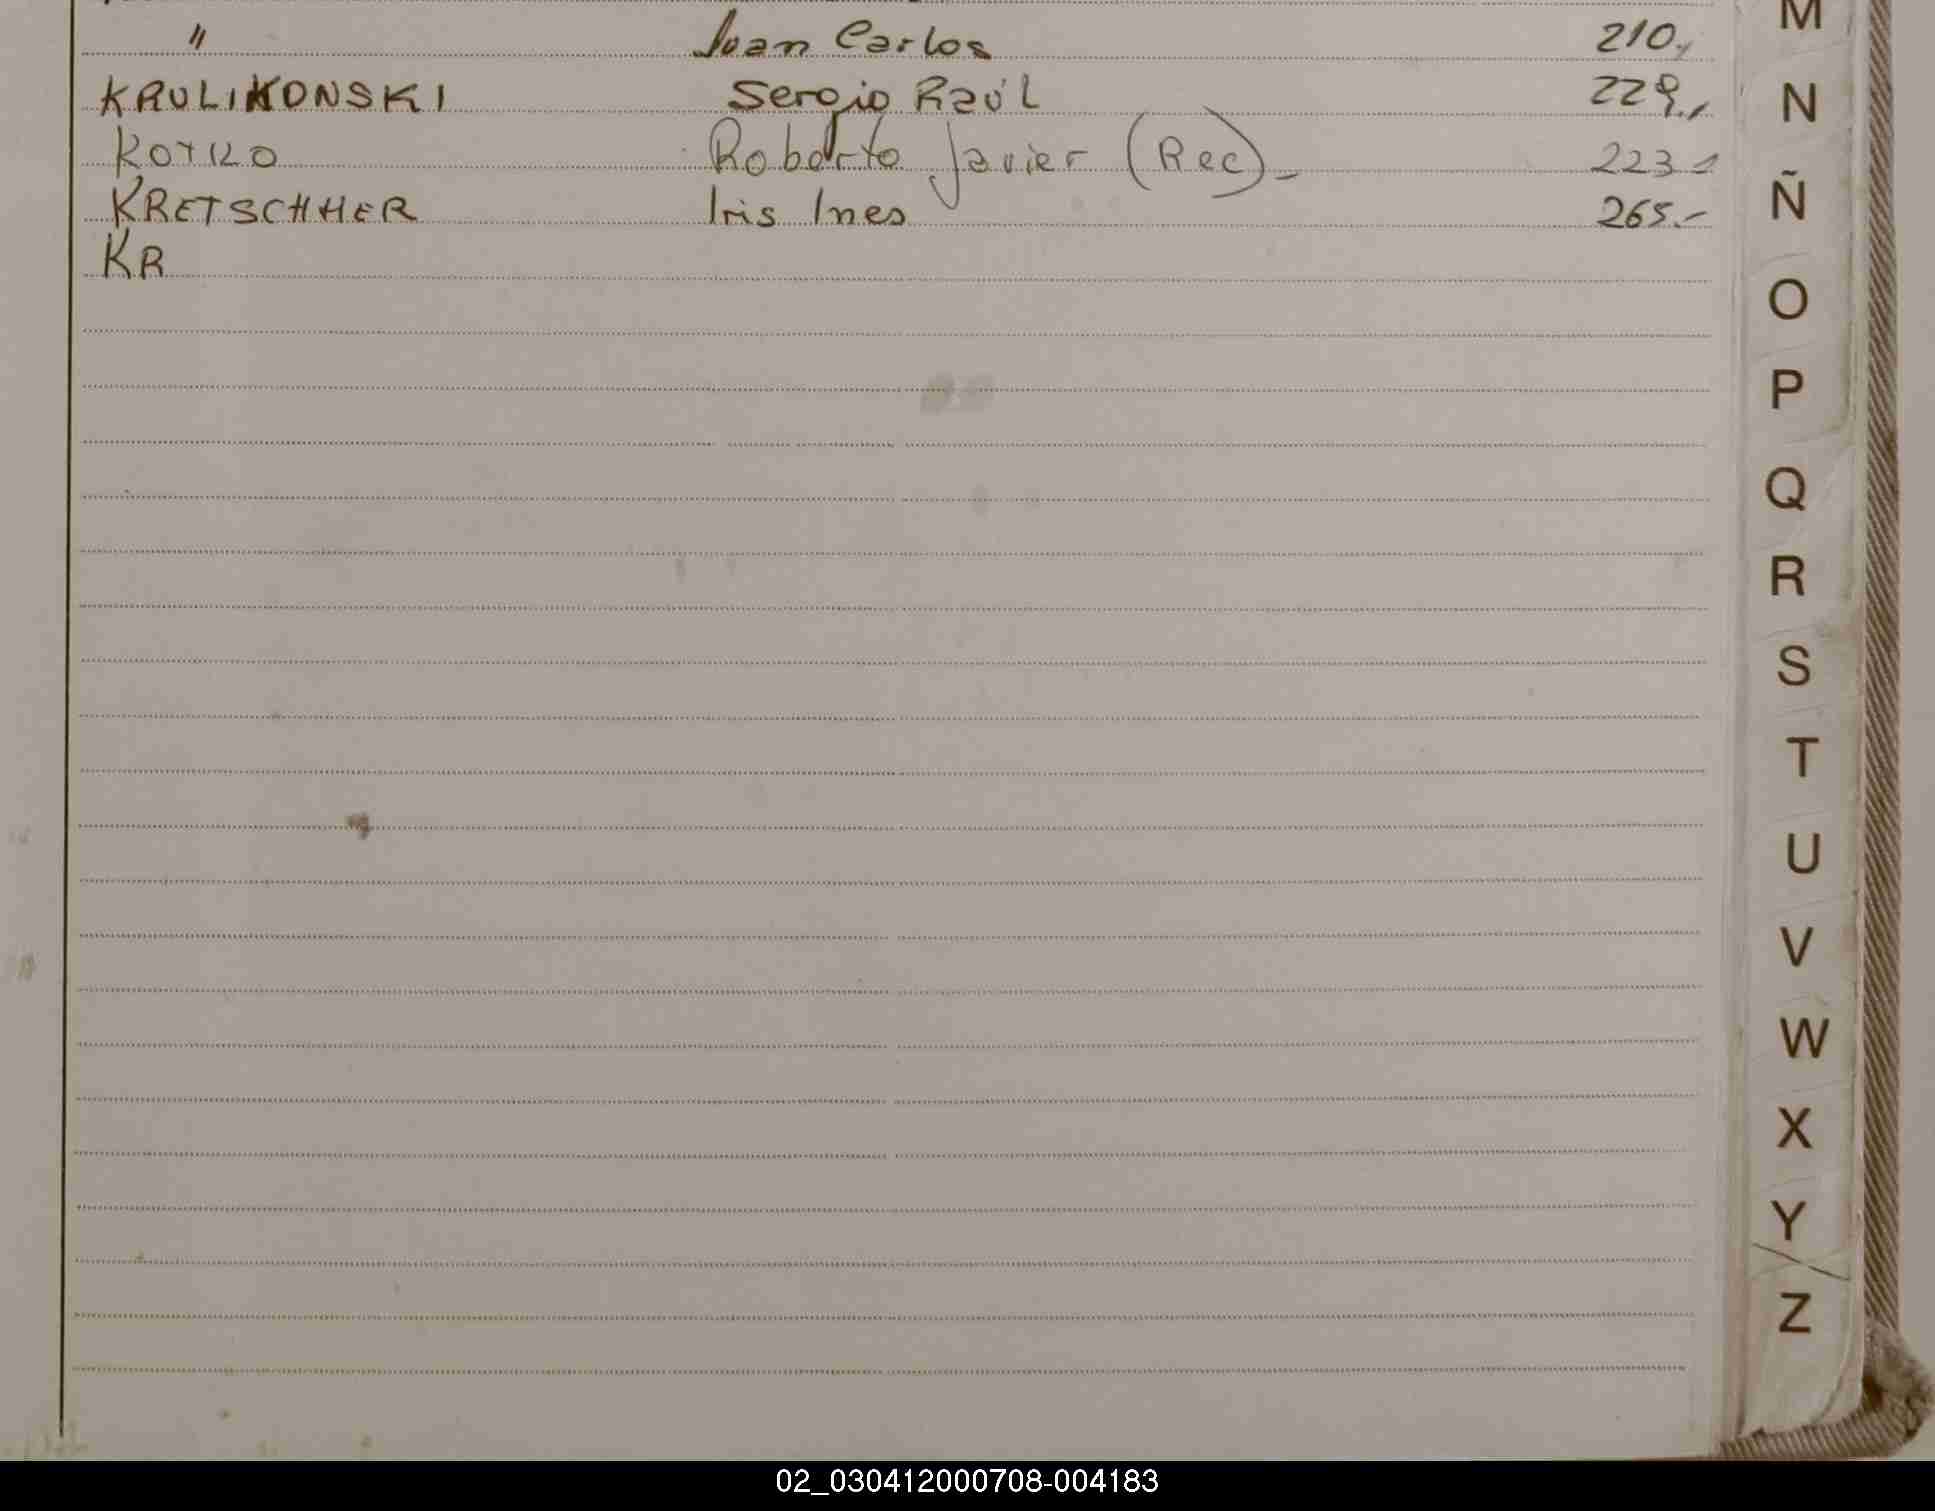 " Juan Carlos 210,
KRULIKONSKI Sergio Raúl 229,,
Roberto Javier (Rec)_ 223_
KRETSCHHER Iris Ines 265.-
KR
M
N
Ñ
O
P
Q
R
S
T
U
V
W
X
Y
Z
02_030412000708-004183